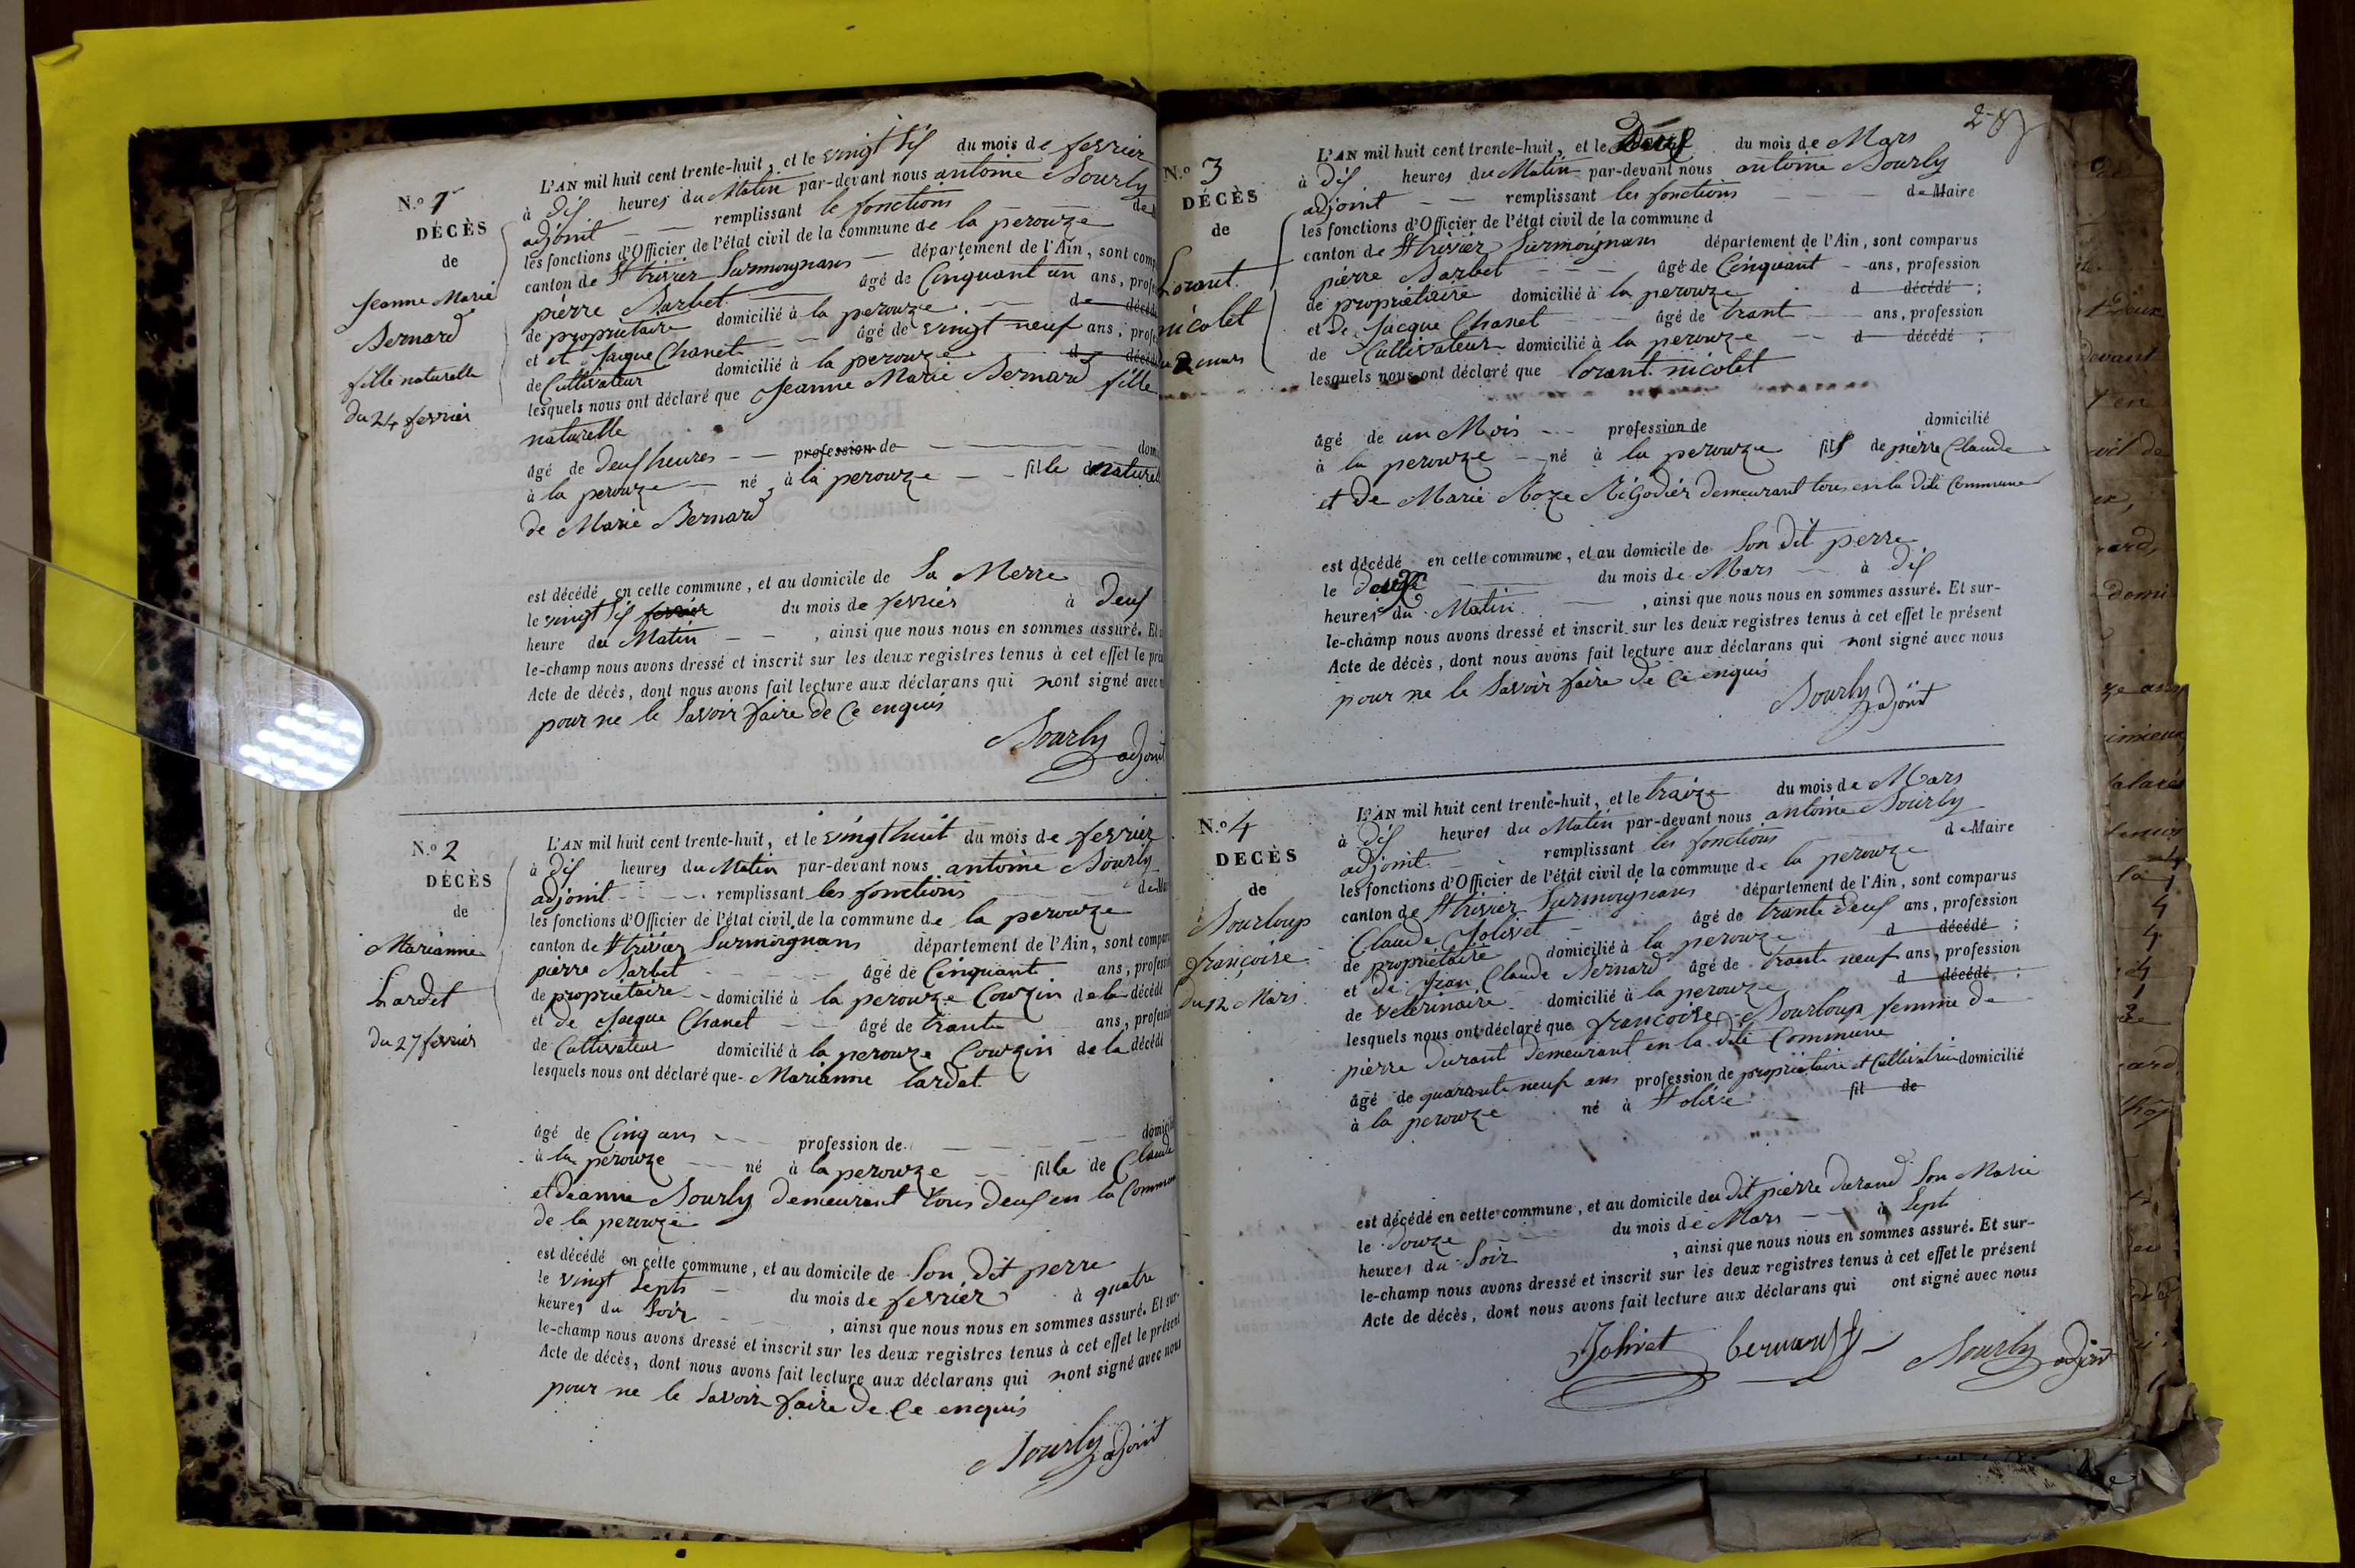 N.º 1
DÉCÈS
de
Jeanne Marie
Bernard
fille naturelle
du 24 fevrier
L'AN mil huit cent trente-huit, et le vingt sis du mois de fevrier
à dis heures du Matin par-devant nous antoine Sourly
adjoint remplissant le fonctions
les fonctions d'Officier de l'état civil de la commune de la perouze
canton de St trivier Surmoignans département de l'Ain, sont
pierre Barbet âgé de Cinquant un ans,
de propriétaire domicilié à la perouze
et de Jacque Chanet âgé de vingt neuf ans,
de Cultivateur domicilié à la perouze
lesquels nous ont déclaré que Jeanne Marie Bernard fille
naturelle
âgé de deus heures profession de
à la perouze né à la perouze fille
de Marie Bernard
est décédé en cette commune, et au domicile de Sa Merre
le vingt sis fevrier du mois de fevrier à deus
heure du Matin, ainsi que nous nous en sommes assuré.
le-champ nous avons dressé et inscrit sur les deux registres tenus à cet effet le
Acte de décès, dont nous avons fait lecture aux déclarans qui nont signé avec
pour ne le Savoir faire de Ce enquis
Sourly
adjoint
N.º 2
DÉCÈS
de
Marianne
Lardet
du 27 fevrier
L'AN mil huit cent trente-huit, et le vingt huit du mois de fevrier
à dis heures du Matin par-devant nous antoine Sourly
adjoint remplissant les fonctions
les fonctions d'Officier de l'état civil de la commune de la perouze
canton de St trivier Surmoignans département de l'Ain, sont
pierre Barbet âgé de Cinquante ans,
de propriétaire domicilié à la perouze Couzin de la décédé
et de Jacque Chanet âgé de trante ans,
de Cultivateur domicilié à la perouze Couzin de la décédé
lesquels nous ont déclaré que Marianne lardet
âgé de Cinq ans profession de
à la perouze né à la perouze fille de Claude
et deanne Sourly demeurant tous deus en la
de la perouze
est décédé en cette commune, et au domicile de Son dit perre
le vingt Septs du mois de fevrier à quatre
heures du Soir, ainsi que nous nous en sommes assuré. Et sur-
le-champ nous avons dressé et inscrit sur les deux registres tenus à cet effet le présent
Acte de décès, dont nous avons fait lecture aux déclarans qui nont signé avec nous
pour ne le Savoir faire de Ce enquis
Sourly adjoint
N.º 3
DÉCÈS
de
Lorant
nicolet
L'AN mil huit cent trente-huit, et le Deus du mois de Mars
à Dis heures du Matin par-devant nous antoine Sourly
adjoint remplissant les fonctions de Maire
les fonctions d'Officier de l'état civil de la commune d
canton de St trivier Surmoignans département de l'Ain, sont comparus
pierre Barbet âgé de Cinquant ans, profession
de propriétaire domicilié à la perouze d décédé;
et de Jacque Chanet âgé de trant ans, profession
de Cultivateur domicilié à la perouze d décédé;
lesquels nous ont déclaré que lorant nicolet
âgé de un Mois profession de domicilié
à la perouze né à la perouze fils de pierre Claude
et de Marie Roze Régodier demeurant tous en la dite Commune
est décédé en cette commune, et au domicile de Son dit perre
le du mois de Mars à dis
heures du Matin, ainsi que nous nous en sommes assuré. Et sur-
le-champ nous avons dressé et inscrit sur les deux registres tenus à cet effet le présent
Acte de décès, dont nous avons fait lecture aux déclarans qui nont signé avec nous
pour ne le Savoir faire de Ce enquis
Sourly
adjoint
N.º 4
DECÈS
de
Sourloup
françoise
du 12 Mars
L'AN mil huit cent trente-huit, et le traize du mois de Mars
à dis heures du Matin par-devant nous antoine Sourly
adjoint remplissant les fonctions de Maire
les fonctions d'Officier de l'état civil de la commune de la perouze
canton de St trivier Surmoignans département de l'Ain, sont comparus
Claude Jolivet âgé de trante deus ans, profession
de propriétaire domicilié à la perouze d décédé;
et de Jean Claude Bernard âgé de trante neuf ans, profession
de veterinaire domicilié à la perouze d décédé;
lesquels nous ont déclaré que françoise Sourloup femme de
pierre durant demeurant en la dite Commune
âgé de quarante neuf ans profession de propriétaire et Cultivatrice domicilié
à la perouze né à St olive fil de
est décédé en cette commune, et au domicile du dit pierre durand Son Marie
le douze du mois de Mars à Septs
heures du Soir, ainsi que nous nous en sommes assuré. Et sur-
le-champ nous avons dressé et inscrit sur les deux registres tenus à cet effet le présent
Acte de décès, dont nous avons fait lecture aux déclarans qui ont signé avec nous
Jolivet bernard Sourly adjoint